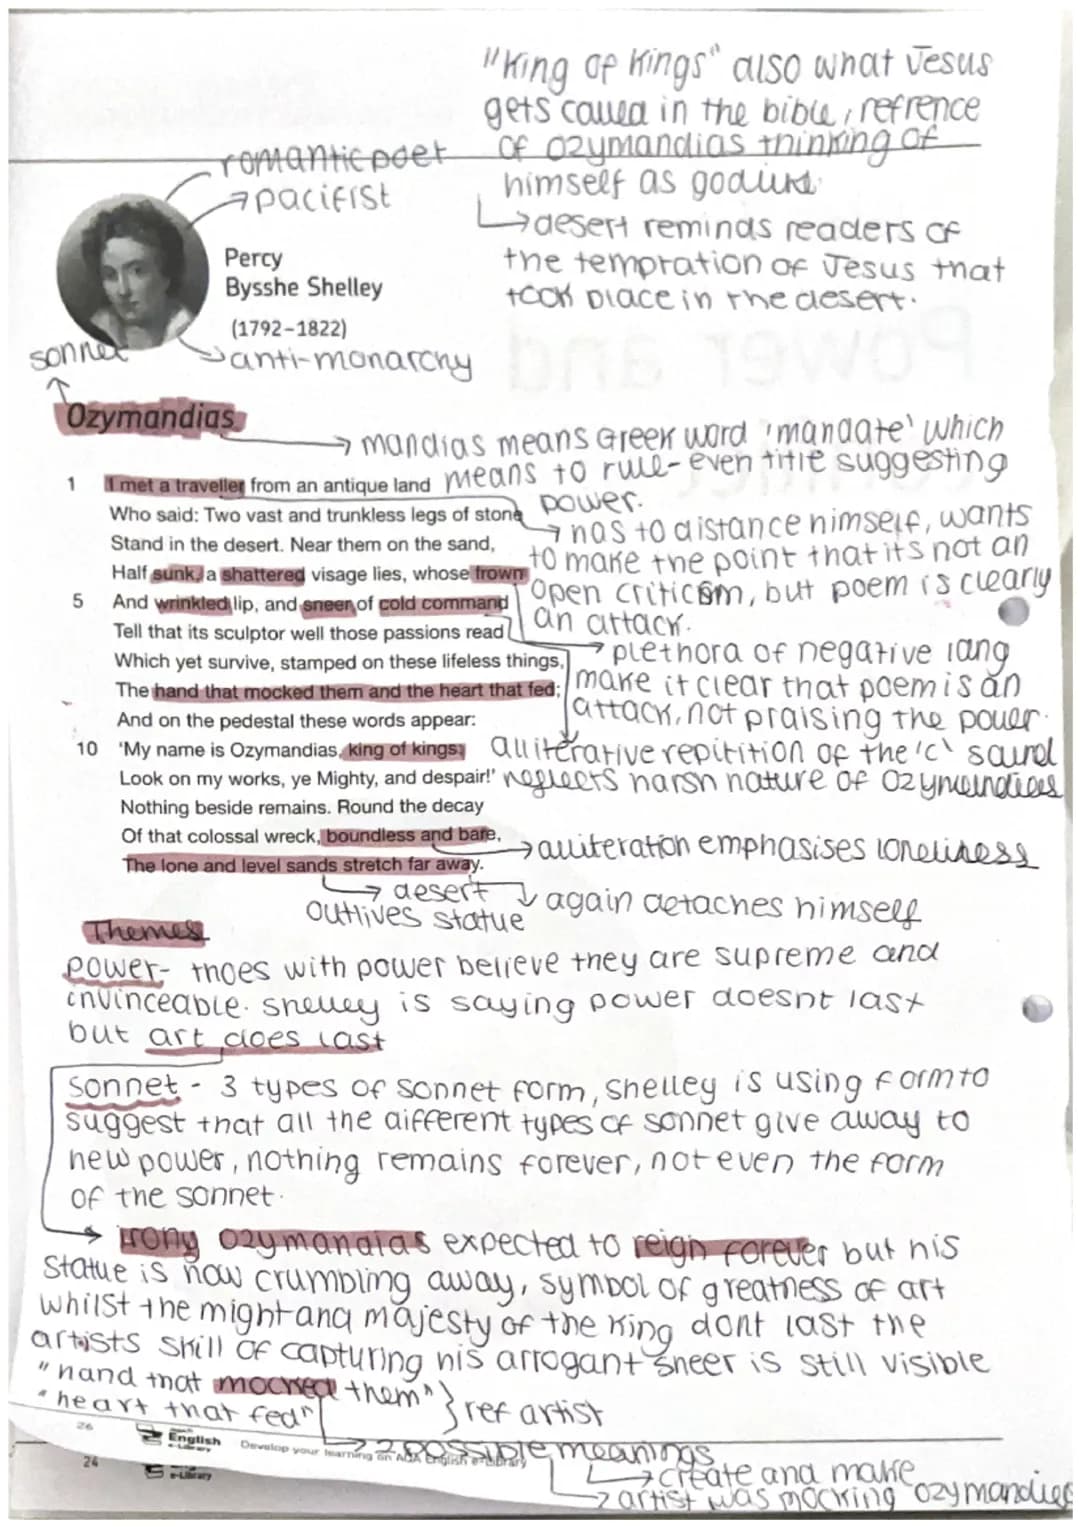 "King of Kings" also what Jesus
gets called in the bible, refrence
of ozymandias thinking of
himself as godlike
→desert reminds readers of
the tempration of Jesus that
took place in the desert.
romantic poet
→pacifist
Percy
Bysshe Shelley
(1792–1822)
anti-monarchy
sonnet
Ozymandias
→ mandias means Greek word 'mandate' which
means to rule- even title suggesting
power.
1 I met a traveller from an antique land
Who said: Two vast and trunkless legs of stone
Stand in the desert. Near them on the sand,
Half sunk, a shattered visage lies, whose frown
5 And wrinkled lip, and sneer of cold command
Tell that its sculptor well those passions read
Which yet survive, stamped on these lifeless things,
The hand that mocked them and the heart that fed;
And on the pedestal these words appear:
10 'My name is Ozymandias, king of kings;
Look on my works, ye Mighty, and despair!'
Nothing beside remains. Round the decay
Of that colossal wreck, boundless and bare,
The lone and level sands stretch far away.
→ has to distance himself, wants
to make the point that its not an
open criticism, but poem is clearly
an attack.
→ plethora of negative lang
make it clear that poem is an
attack, not praising the power.
alliterative repitition of the 'c' sound
reflects harsh nature of Ozymandias
→alliteration emphasises loneliness
→ desert
outlives statue
↓ again detaches himself
Themes
power- thoes with power believe they are supreme and
invinceable. Shelley is saying power doesnt last
but art does last
sonnet - 3 types of sonnet form, Shelley is using form to
suggest that all the different types of sonnet give away to
new power, nothing remains forever, not even the form
of the sonnet.
→ Irony ozymandias expected to reign forever but his
statue is now crumbling away, symbol of greatness of art
whilst the might and majesty of the King dont last the
artists skill of capturing his arrogant sneer is still visible
"hand that mocked them"
"heart that fed"
} ref artist
→ 2 possible meanings
→ create and make
→ artist was mocking ozymandias
26
English
e-Library
Develop your learning on AQA English e-Library
24
e-Library